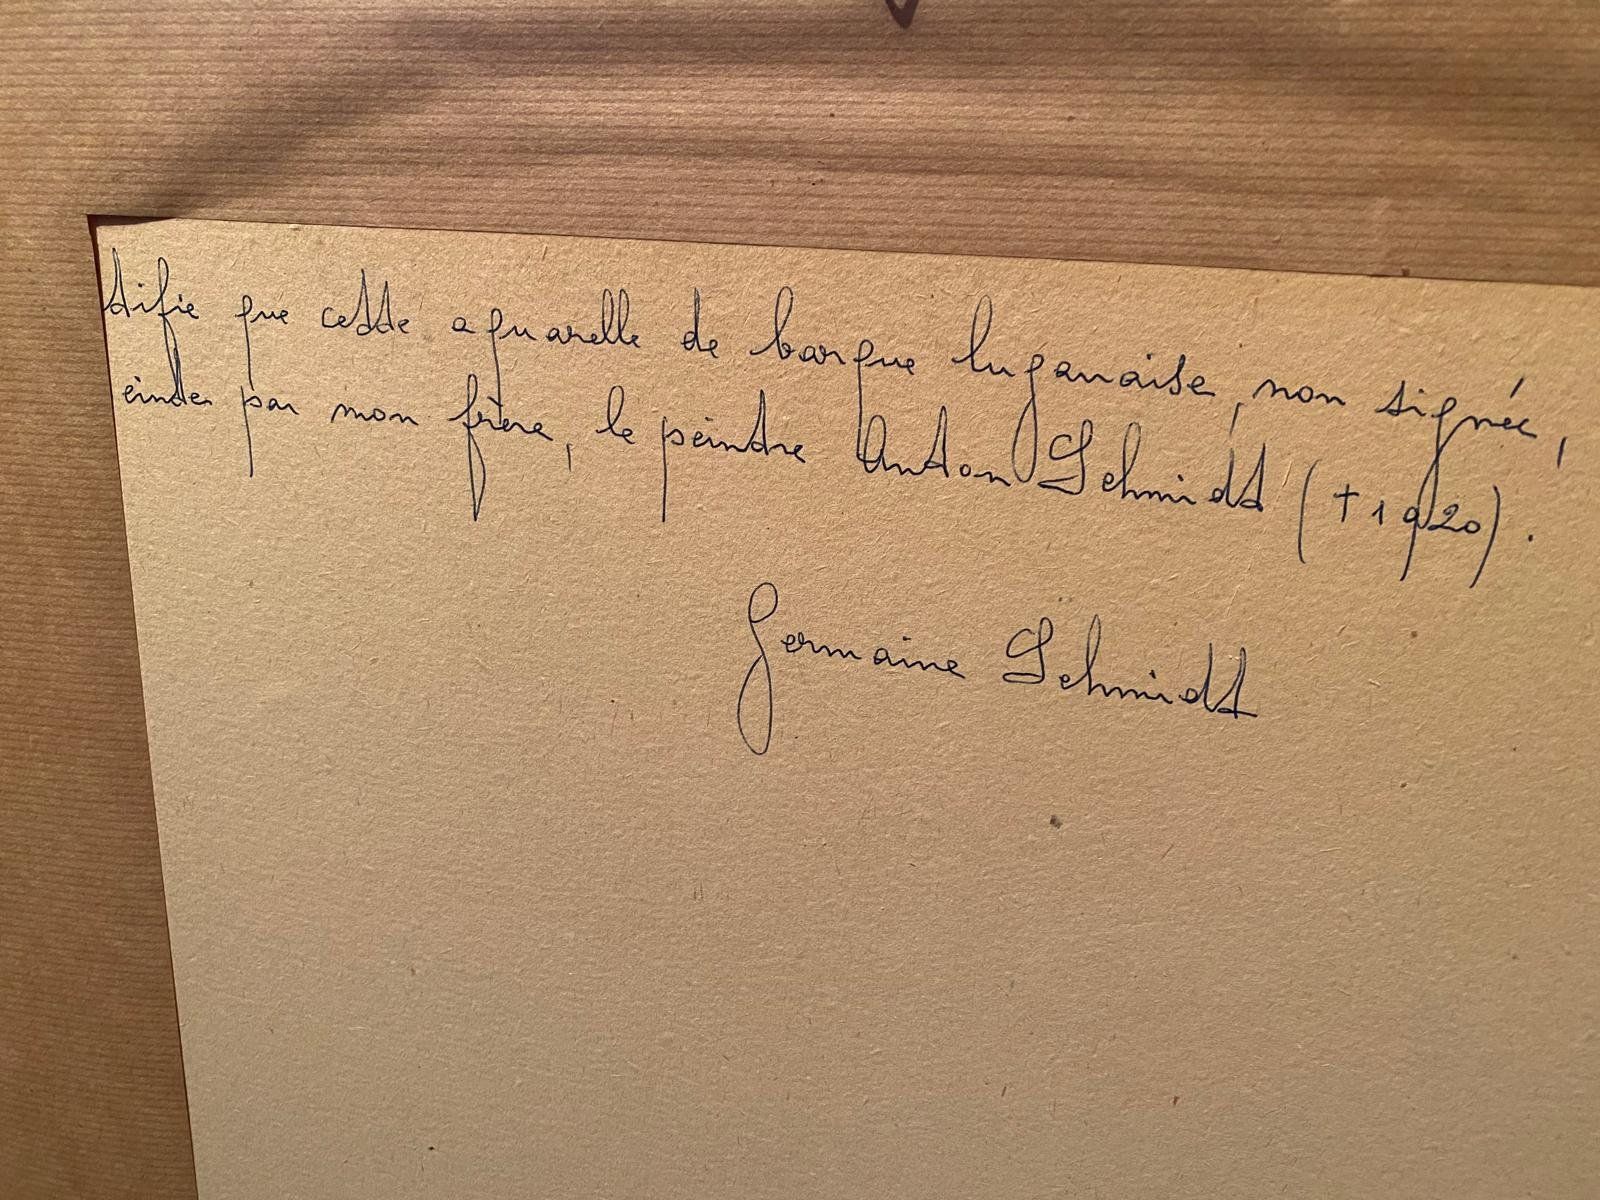 tifie que cette aquarelle de barque luganaise, non signée,
einte par mon frère, le peintre Anton Schmidt († 1920).
Germaine Schmidt